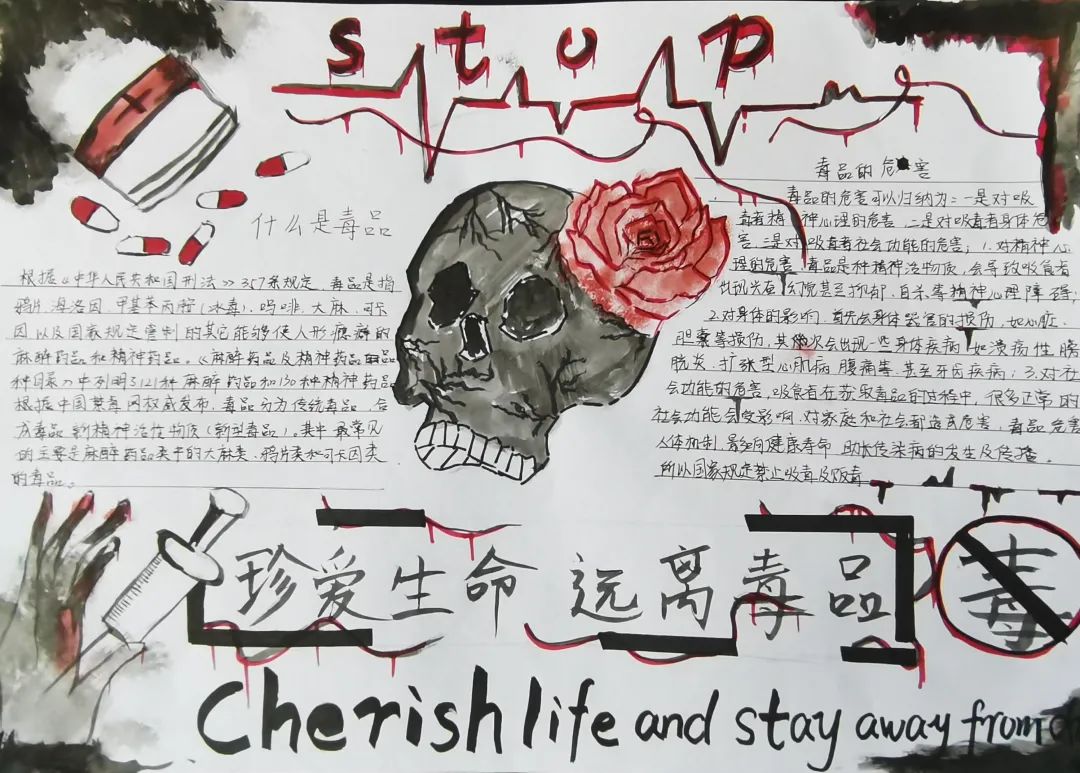 stop
什么是毒品
根据《中华人民共和国刑法》357条规定，毒品是指
鸦片、海洛因、甲基苯丙胺（冰毒）、吗啡、大麻、可卡
因以及国家规定管制的其它能够使人形成瘾癖的
麻醉药品和精神药品。《麻醉药品及精神药品品
种目录》中列明了121种麻醉药品和130种精神药品
根据中国禁毒网权威发布，毒品分为传统毒品、合
成毒品、新精神活性物质（新型毒品）。其中最常见
的主要是麻醉药品类中的大麻类、鸦片类和可卡因类
的毒品。
毒品的危害
毒品的危害可以归纳为：一是对吸
毒者精神心理的危害，二是对吸毒者身体危
害，三是对吸毒者社会功能的危害；1.对精神心
理的危害，毒品是种精神活物质，会导致吸食者
出现兴奋、幻觉甚至抑郁、自杀等精神心理障碍；
2.对身体的影响，首先会身体器官的损伤，如心脏、
胆囊等损伤，其次会出现一些身体疾病，如溃疡性膀
胱炎、扩张型心肌病、腹痛等，甚至牙齿疾病；3.对社
会功能的危害，吸食者在获取毒品的过程中，很多正常的
社会功能会受影响，对家庭和社会都造成危害，毒品危害
人体机制，影响健康寿命，助长传染病的发生及传播。
所以国家规定禁止吸毒及贩毒
珍爱生命 远离毒品
毒
Cherish life and stay away from